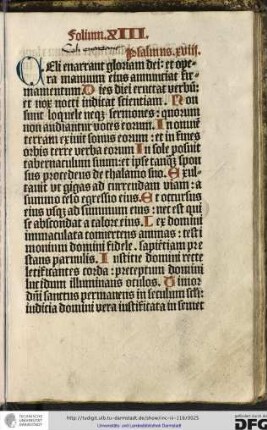 Folium.XIII.
Psalmus.xviij.
Celi enarrant gloriam dei: et ope
ra manuum eius annunciat fir
mamentum Dies diei eructat verbū:
et nox nocti indicat scientiam. Non
sunt loquele neqz sermones: quorum
non audiantur voces eorum. In omnē
terram exiuit sonus eorum: et in fines
orbis terre verba eorum In sole posuit
tabernaculum suum: et ipse tanqz spon
sus procedens de thalamo suo. Exul-
tauit vt gigas ad currendam viam: a
summo celo egressio eius. Et occursus
eius vsqz ad summum eius: nec est qui
se abscondat a calore eius. Lex domini
immaculata conuertens animas: testi
monium domini fidele. sapiētiam pre
stans paruulis. Iusticie domini recte
letificantes corda: preceptum domini
lucidum illuminans oculos. Timor
dn̄i sanctus permanens in seculum scl̄i:
iudicia domini vera iustificata in semet
http://tudigit.ulb.tu-darmstadt.de/show/inc-iv-118/0025
Universitäts- und Landesbibliothek Darmstadt
TECHNISCHE
UNIVERSITÄT
DARMSTADT
DFG